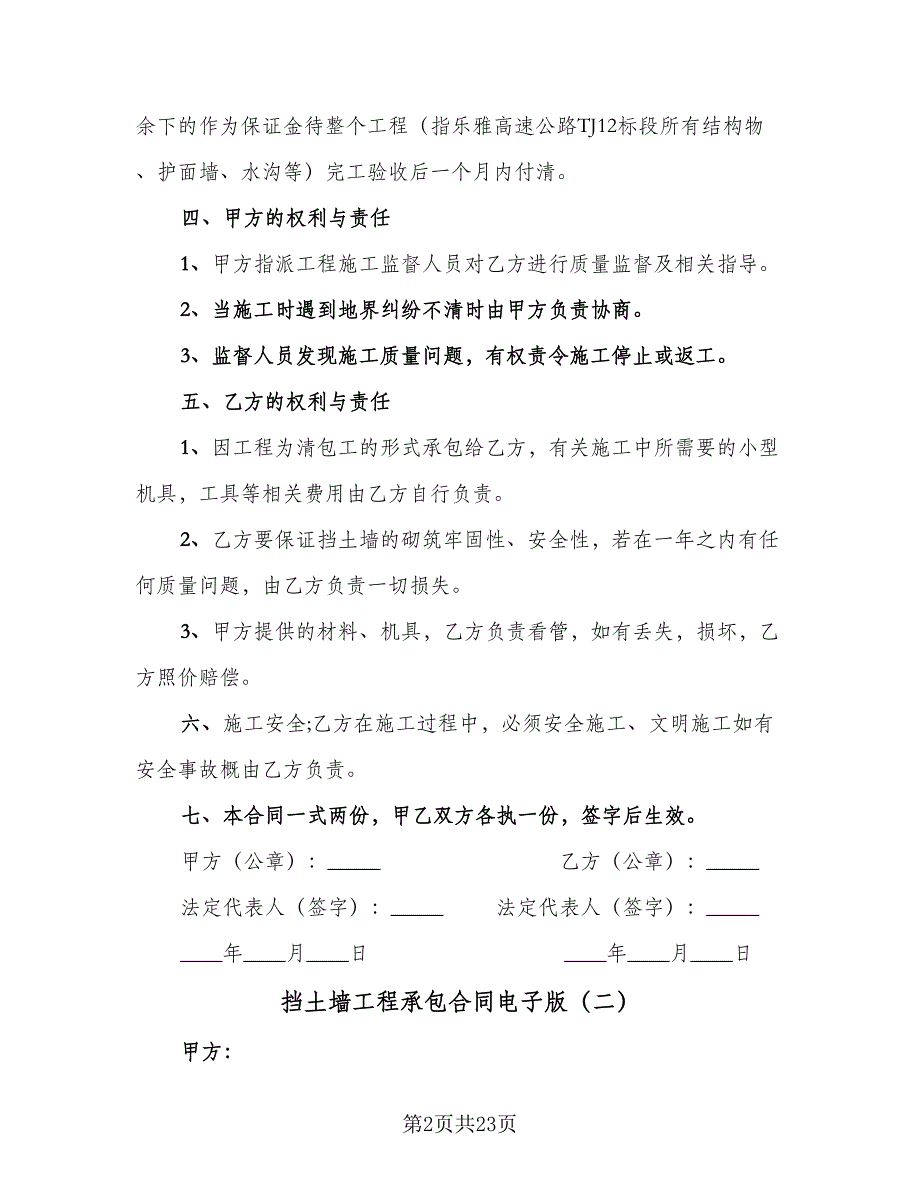 余下的作为保证金待整个工程（指乐雅高速公路TJ12标段所有结构物
、护面墙、水沟等）完工验收后一个月内付清。
四、甲方的权利与责任
1、甲方指派工程施工监督人员对乙方进行质量监督及相关指导。
2、当施工时遇到地界纠纷不清时由甲方负责协商。
3、监督人员发现施工质量问题，有权责令施工停止或返工。
五、乙方的权利与责任
1、因工程为清包工的形式承包给乙方，有关施工中所需要的小型
机具，工具等相关费用由乙方自行负责。
2、乙方要保证挡土墙的砌筑牢固性、安全性，若在一年之内有任
何质量问题，由乙方负责一切损失。
3、甲方提供的材料、机具，乙方负责看管，如有丢失，损坏，乙
方照价赔偿。
六、施工安全;乙方在施工过程中，必须安全施工、文明施工如有
安全事故概由乙方负责。
七、本合同一式两份，甲乙双方各执一份，签字后生效。
甲方（公章）：_____ 乙方（公章）：_____
法定代表人（签字）：_____ 法定代表人（签字）：_____
____年____月____日 ____年____月____日
挡土墙工程承包合同电子版（二）
甲方：
第2页共23页